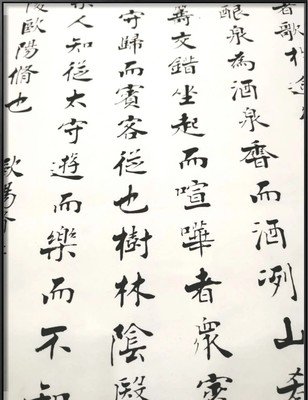 者歌
釀泉為酒泉香而酒洌山
籌交錯坐起而喧嘩者衆賓
守歸而賓客從也樹林陰
人知從太守遊而樂而不知
陵歐陽脩也
歐陽